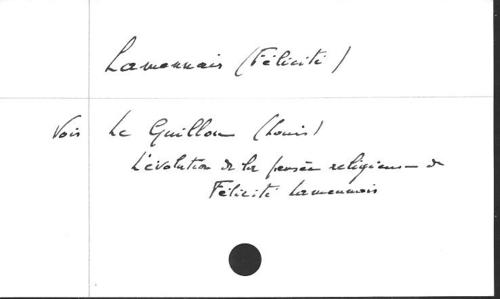 Lamennais (Félicité)
Voir Le Guillou (Louis)
L'évolution de la pensée religieuse de
Félicité Lamennais